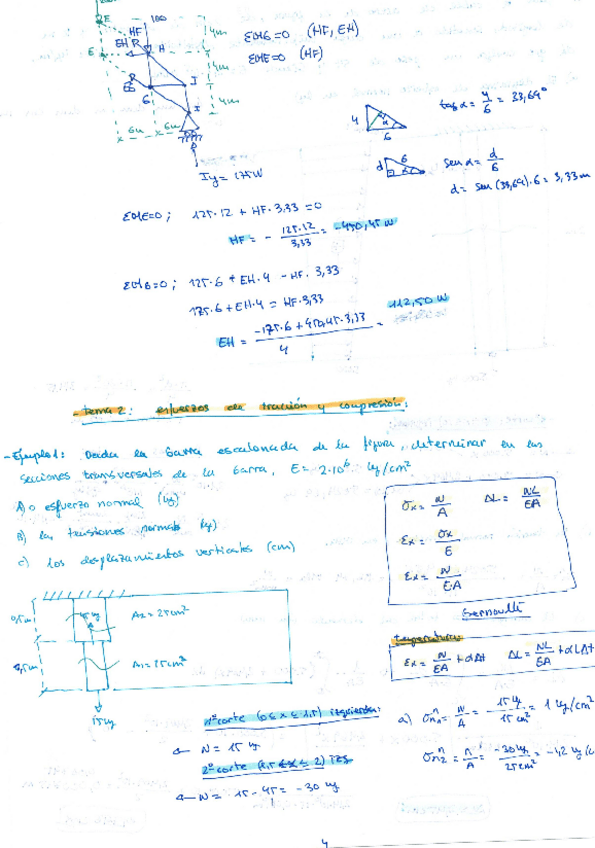 E
100
HF
EH R
H
4m
ΣMG=0 (HF, EH)
E
4m
ΣME=0 (HF)
R
J
G
4m
I
6m 6m
Iy = 125W
4
α
6
tag α = 4/6 = 33,69°
d
6
sen α = d/6
d = sen (33,69)·6 = 3,33m
ΣME=0; 125·12 + HF·3,33=0
HF = - 125·12/3,33 = -450,45 W
ΣMG=0; 125·6 + EH·4 - HF·3,33
125·6 + EH·4 = HF·3,33
EH = -125·6 + 450,45·3,33 / 4 = 112,50 W
- Tema 2: esfuerzos de tracción y compresión:
- Ejemplo 1: Dada la barra escalonada de la figura, determinar en las
secciones transversales de la barra, E= 2·10⁶ kg/cm²
A) o esfuerzo normal (kg)
B) las tensiones normals (kg)
c) los desplazamientos verticales (cm)
σx = N/A ΔL = NL/EA
εx = σx/E
εx = N/E·A
Bernoulli
temperatura:
εx = N/EA + αΔt ΔL = NL/EA + αLΔt
0,5m
45 kg
A2 = 25cm²
1,5m
A1 = 15cm²
15kg
1º corte (0 ≤ x ≤ 1,5) izquierda:
← N = 15 kg
2º corte (1,5 ≤ x ≤ 2) izq
← N = 15 - 45 = -30 kg
a) σn1 = N/A = 15 kg/15 cm² = 1 kg/cm²
σn2 = N/A = -30kg/25cm² = -1,2 kg/c
4